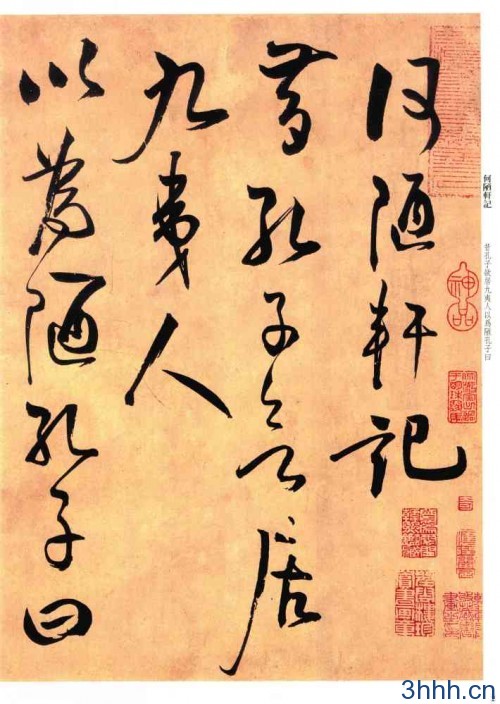 何陋軒記
昔孔子欲居
九夷人
以爲陋孔子曰
何陋軒記
昔孔子欲居九夷人以爲陋孔子曰
神品
3hhh.cn